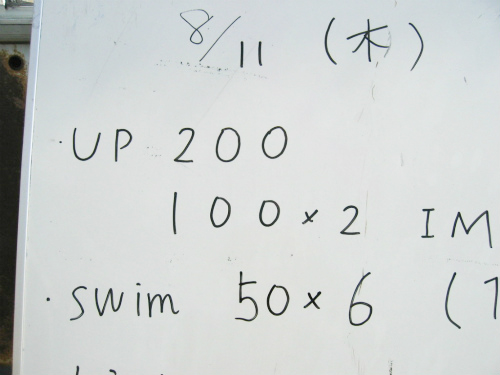 8/11 (木)
・UP 200
100×2 IM
・swim 50×6 (